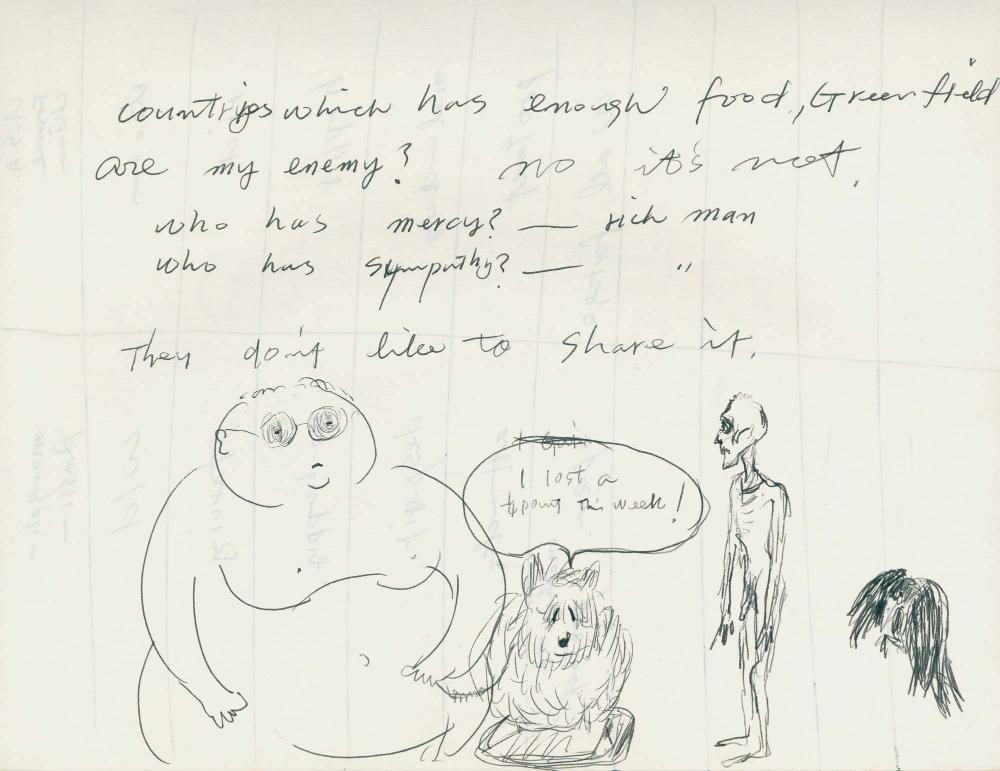 countries which has enough food, Green field
are my enemy? no it's not.
who has mercy? — rich man
who has sympathy? — "
They don't like to share it.
I lost a
pount this week!